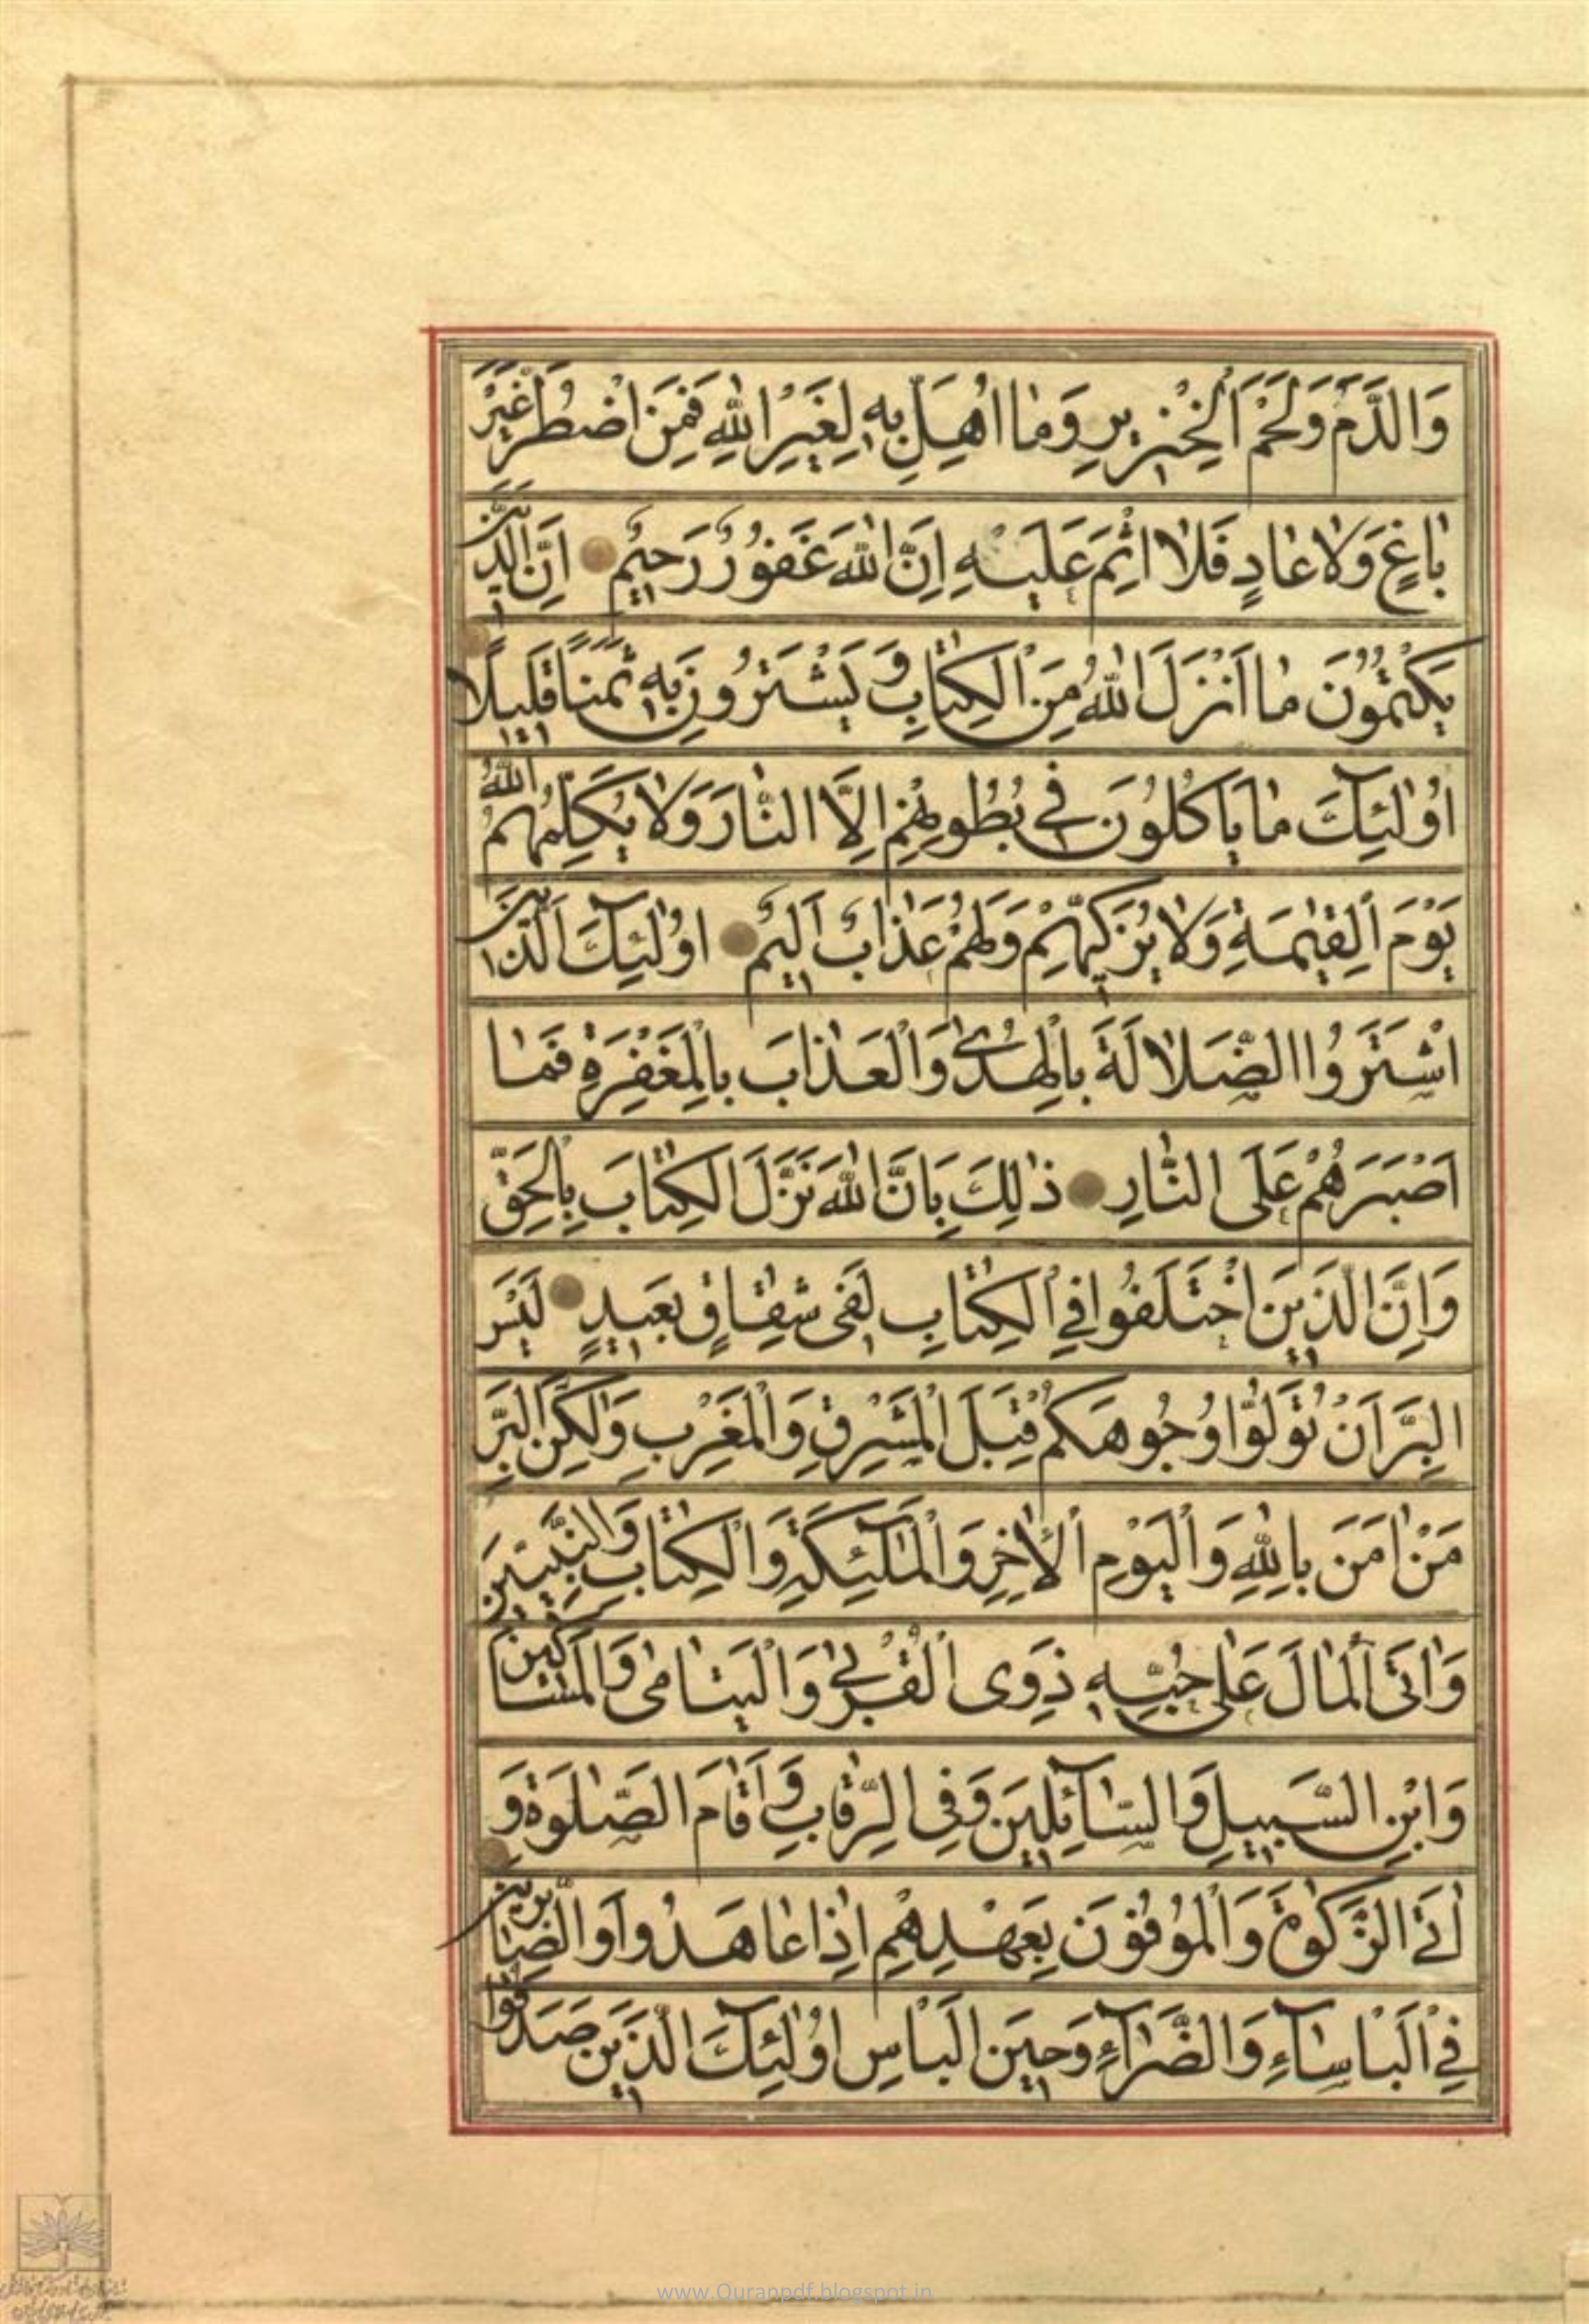 وَالدَّمَ وَلَحْمَ الْخِنْزِيرِ وَمٰا اُهِلَّ بِهِ لِغَيْرِ اللّٰهِ فَمَنِ اضْطُرَّ غَيْرَ
بٰاغٍ وَلاٰ عٰادٍ فَلاٰ اِثْمَ عَلَيْهِ اِنَّ اللّٰهَ غَفُورٌ رَحِيمٌ اِنَّ الَّذِينَ
يَكْتُمُونَ مٰا اَنْزَلَ اللّٰهُ مِنَ الْكِتٰابِ وَيَشْتَرُونَ بِهِ ثَمَنًا قَلِيلًا
اُولٰئِكَ مٰا يَاكُلُونَ فِي بُطُونِهِمْ اِلَّا النّٰارَ وَلاٰ يُكَلِّمُهُمُ اللّٰهُ
يَوْمَ الْقِيٰمَةِ وَلاٰ يُزَكِّيهِمْ وَلَهُمْ عَذٰابٌ اَلِيمٌ اُولٰئِكَ الَّذِينَ
اشْتَرَوُا الضَّلاٰلَةَ بِالْهُدىٰ وَالْعَذٰابَ بِالْمَغْفِرَةِ فَمٰا
اَصْبَرَهُمْ عَلَى النّٰارِ ذٰلِكَ بِاَنَّ اللّٰهَ نَزَّلَ الْكِتٰابَ بِالْحَقِّ
وَاِنَّ الَّذِينَ اخْتَلَفُوا فِي الْكِتٰابِ لَفِي شِقٰاقٍ بَعِيدٍ لَيْسَ
الْبِرَّ اَنْ تُوَلُّوا وُجُوهَكُمْ قِبَلَ الْمَشْرِقِ وَالْمَغْرِبِ وَلٰكِنَّ الْبِرَّ
مَنْ اٰمَنَ بِاللّٰهِ وَالْيَوْمِ الْاٰخِرِ وَالْمَلٰٓئِكَةِ وَالْكِتٰابِ وَالنَّبِيِّينَ
وَاٰتَى الْمٰالَ عَلىٰ حُبِّهِ ذَوِي الْقُرْبىٰ وَالْيَتٰامىٰ وَالْمَسٰاكِينَ
وَابْنَ السَّبِيلِ وَالسّٰٓائِلِينَ وَفِي الرِّقٰابِ وَاَقٰامَ الصَّلٰوةَ وَ
اٰتَى الزَّكٰوةَ وَالْمُوفُونَ بِعَهْدِهِمْ اِذٰا عٰاهَدُوا وَالصّٰابِرِينَ
فِي الْبَاسٰٓاءِ وَالضَّرّٰٓاءِ وَحِينَ الْبَاسِ اُولٰئِكَ الَّذِينَ صَدَقُوا
www.Quranpdf.blogspot.in